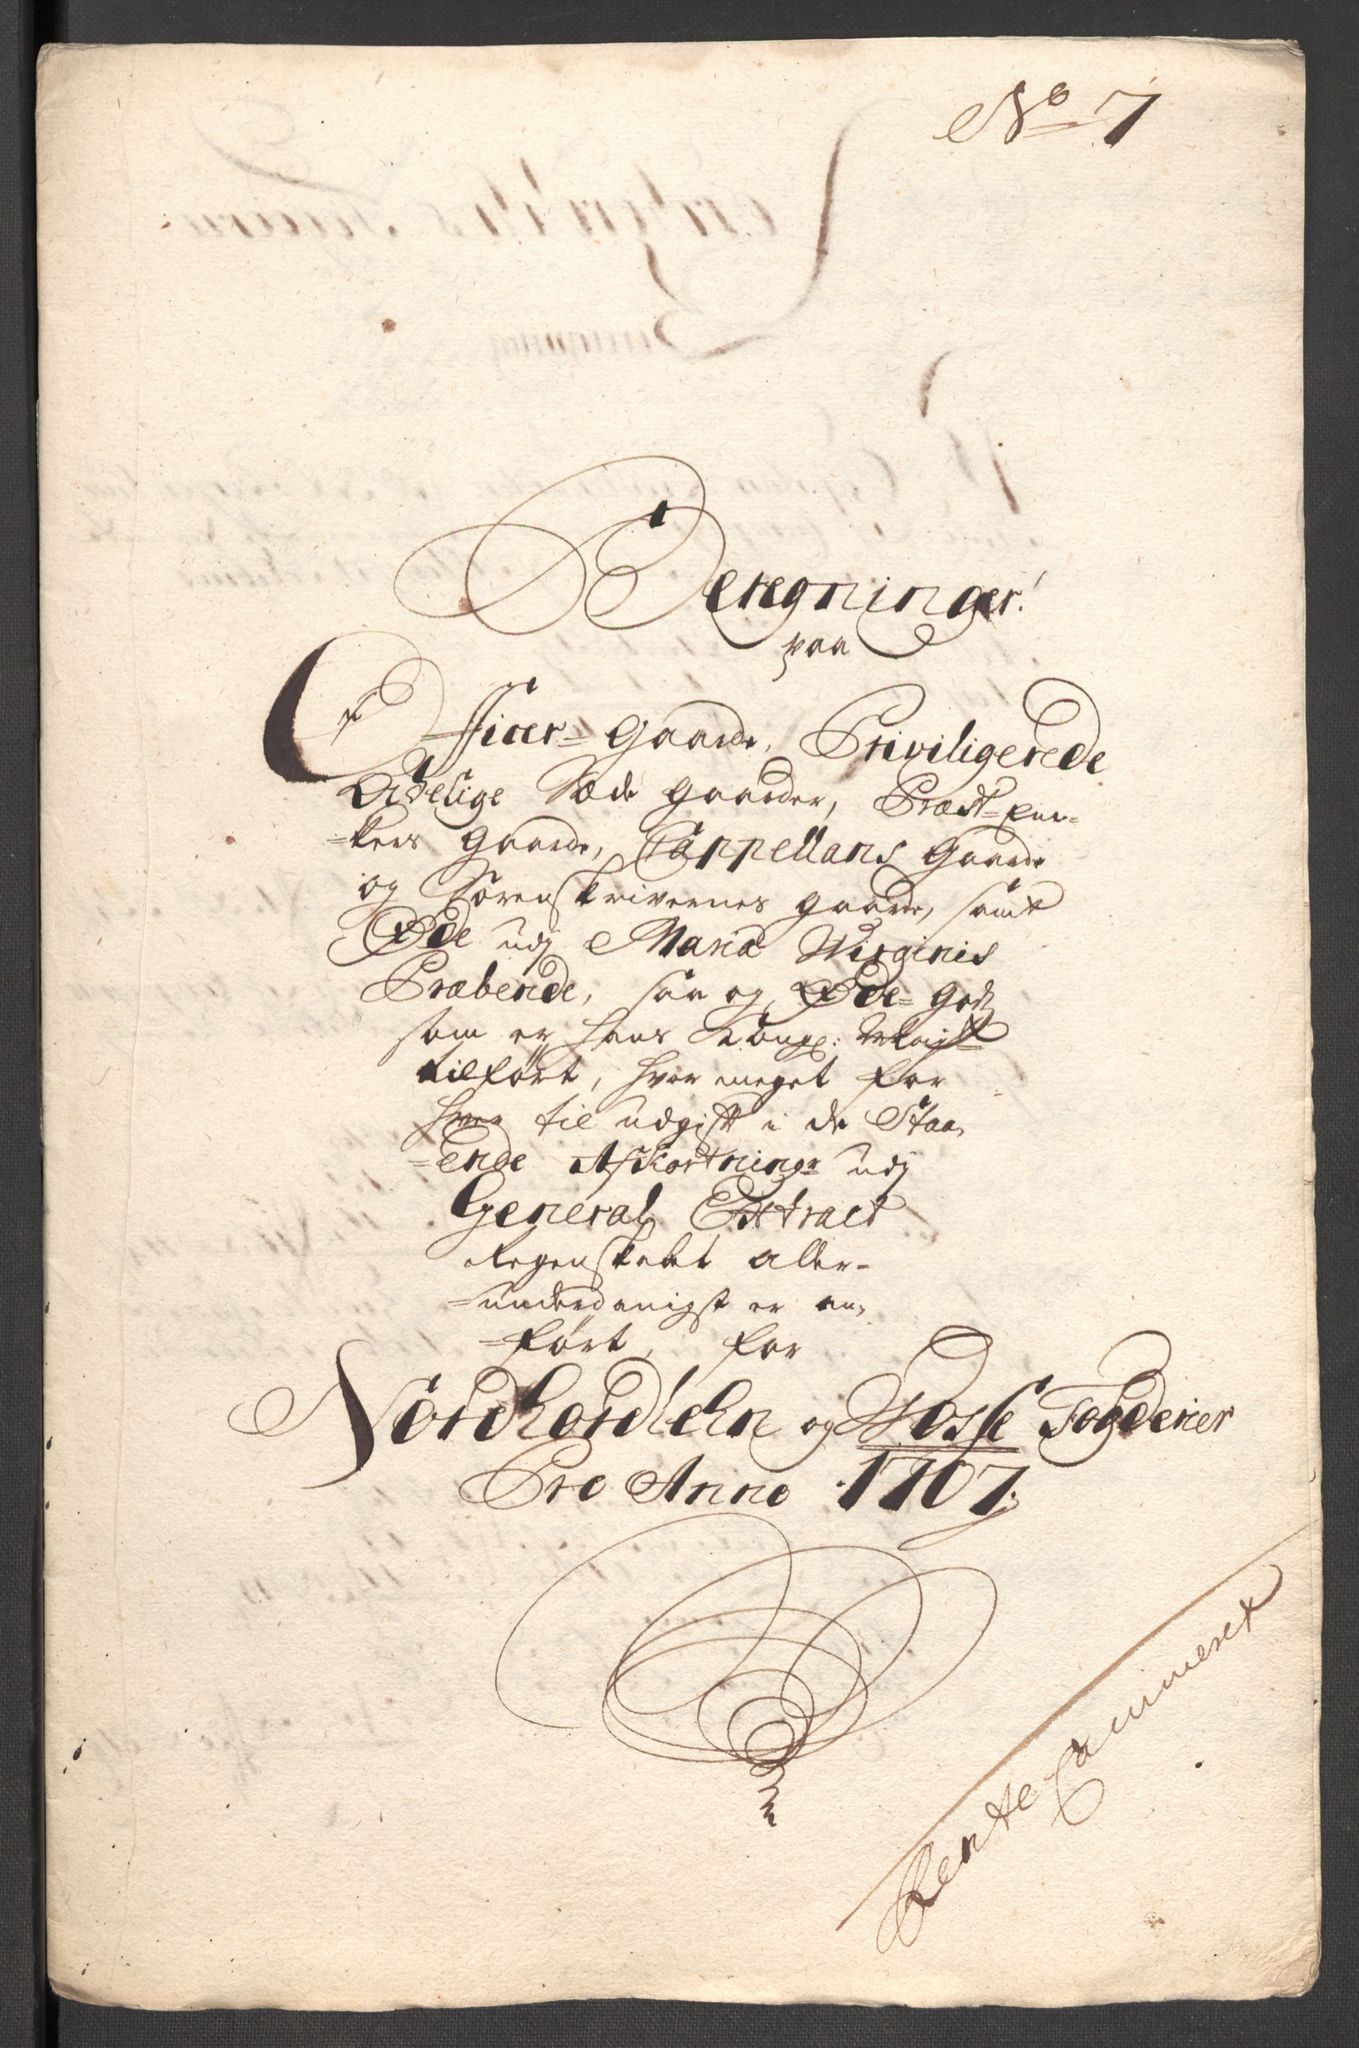 No 7
Beregninger
paa
Officer-Gaarde, Priviligerede
Adelige Sæde gaarder, Præst-En-
-kers gaarde, Cappellans Gaarde
og Sorenskrivernes gaarde, samt
Øde udj Maria Wirginis
Præbende, saa og Øde-Gods
som er Hans Kongl: Mayst
tilført, hvor meget for
hver til udgift i de Staa-
-ende Afkortninger udj
General Extract
Regenskabet aller-
-underdanigst er an-
-ført, for
Nordhordlehn og Vosse Fogderier
Pro Anno 1707.
Rente Cammeret